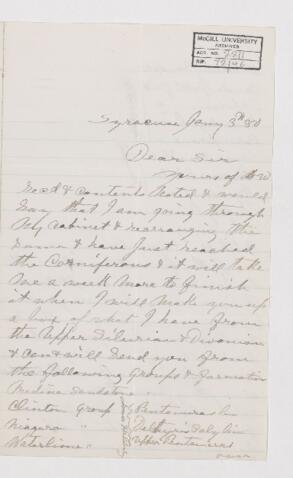 McGILL UNIVERSITY
ARCHIVES
ACC. NO.
REF.
Syracuse Jany 3th 80
Dear Sir
Yours of the
Recd & contents Noted & would
say that I am going through
My Cabinet & rearranging the
same & have just reached
the Corniferous & it will take
me a week more to finish
it when I will make you up
a box of what I have from
the Upper Silurian & Devonian
& can & will send you from
the following Groups & formation
Medina Sandstone
Clinton Group Pentamerus Lim
Niagara " Delthyris Shaly Lim
Waterlime " Upper Pentamerus
over